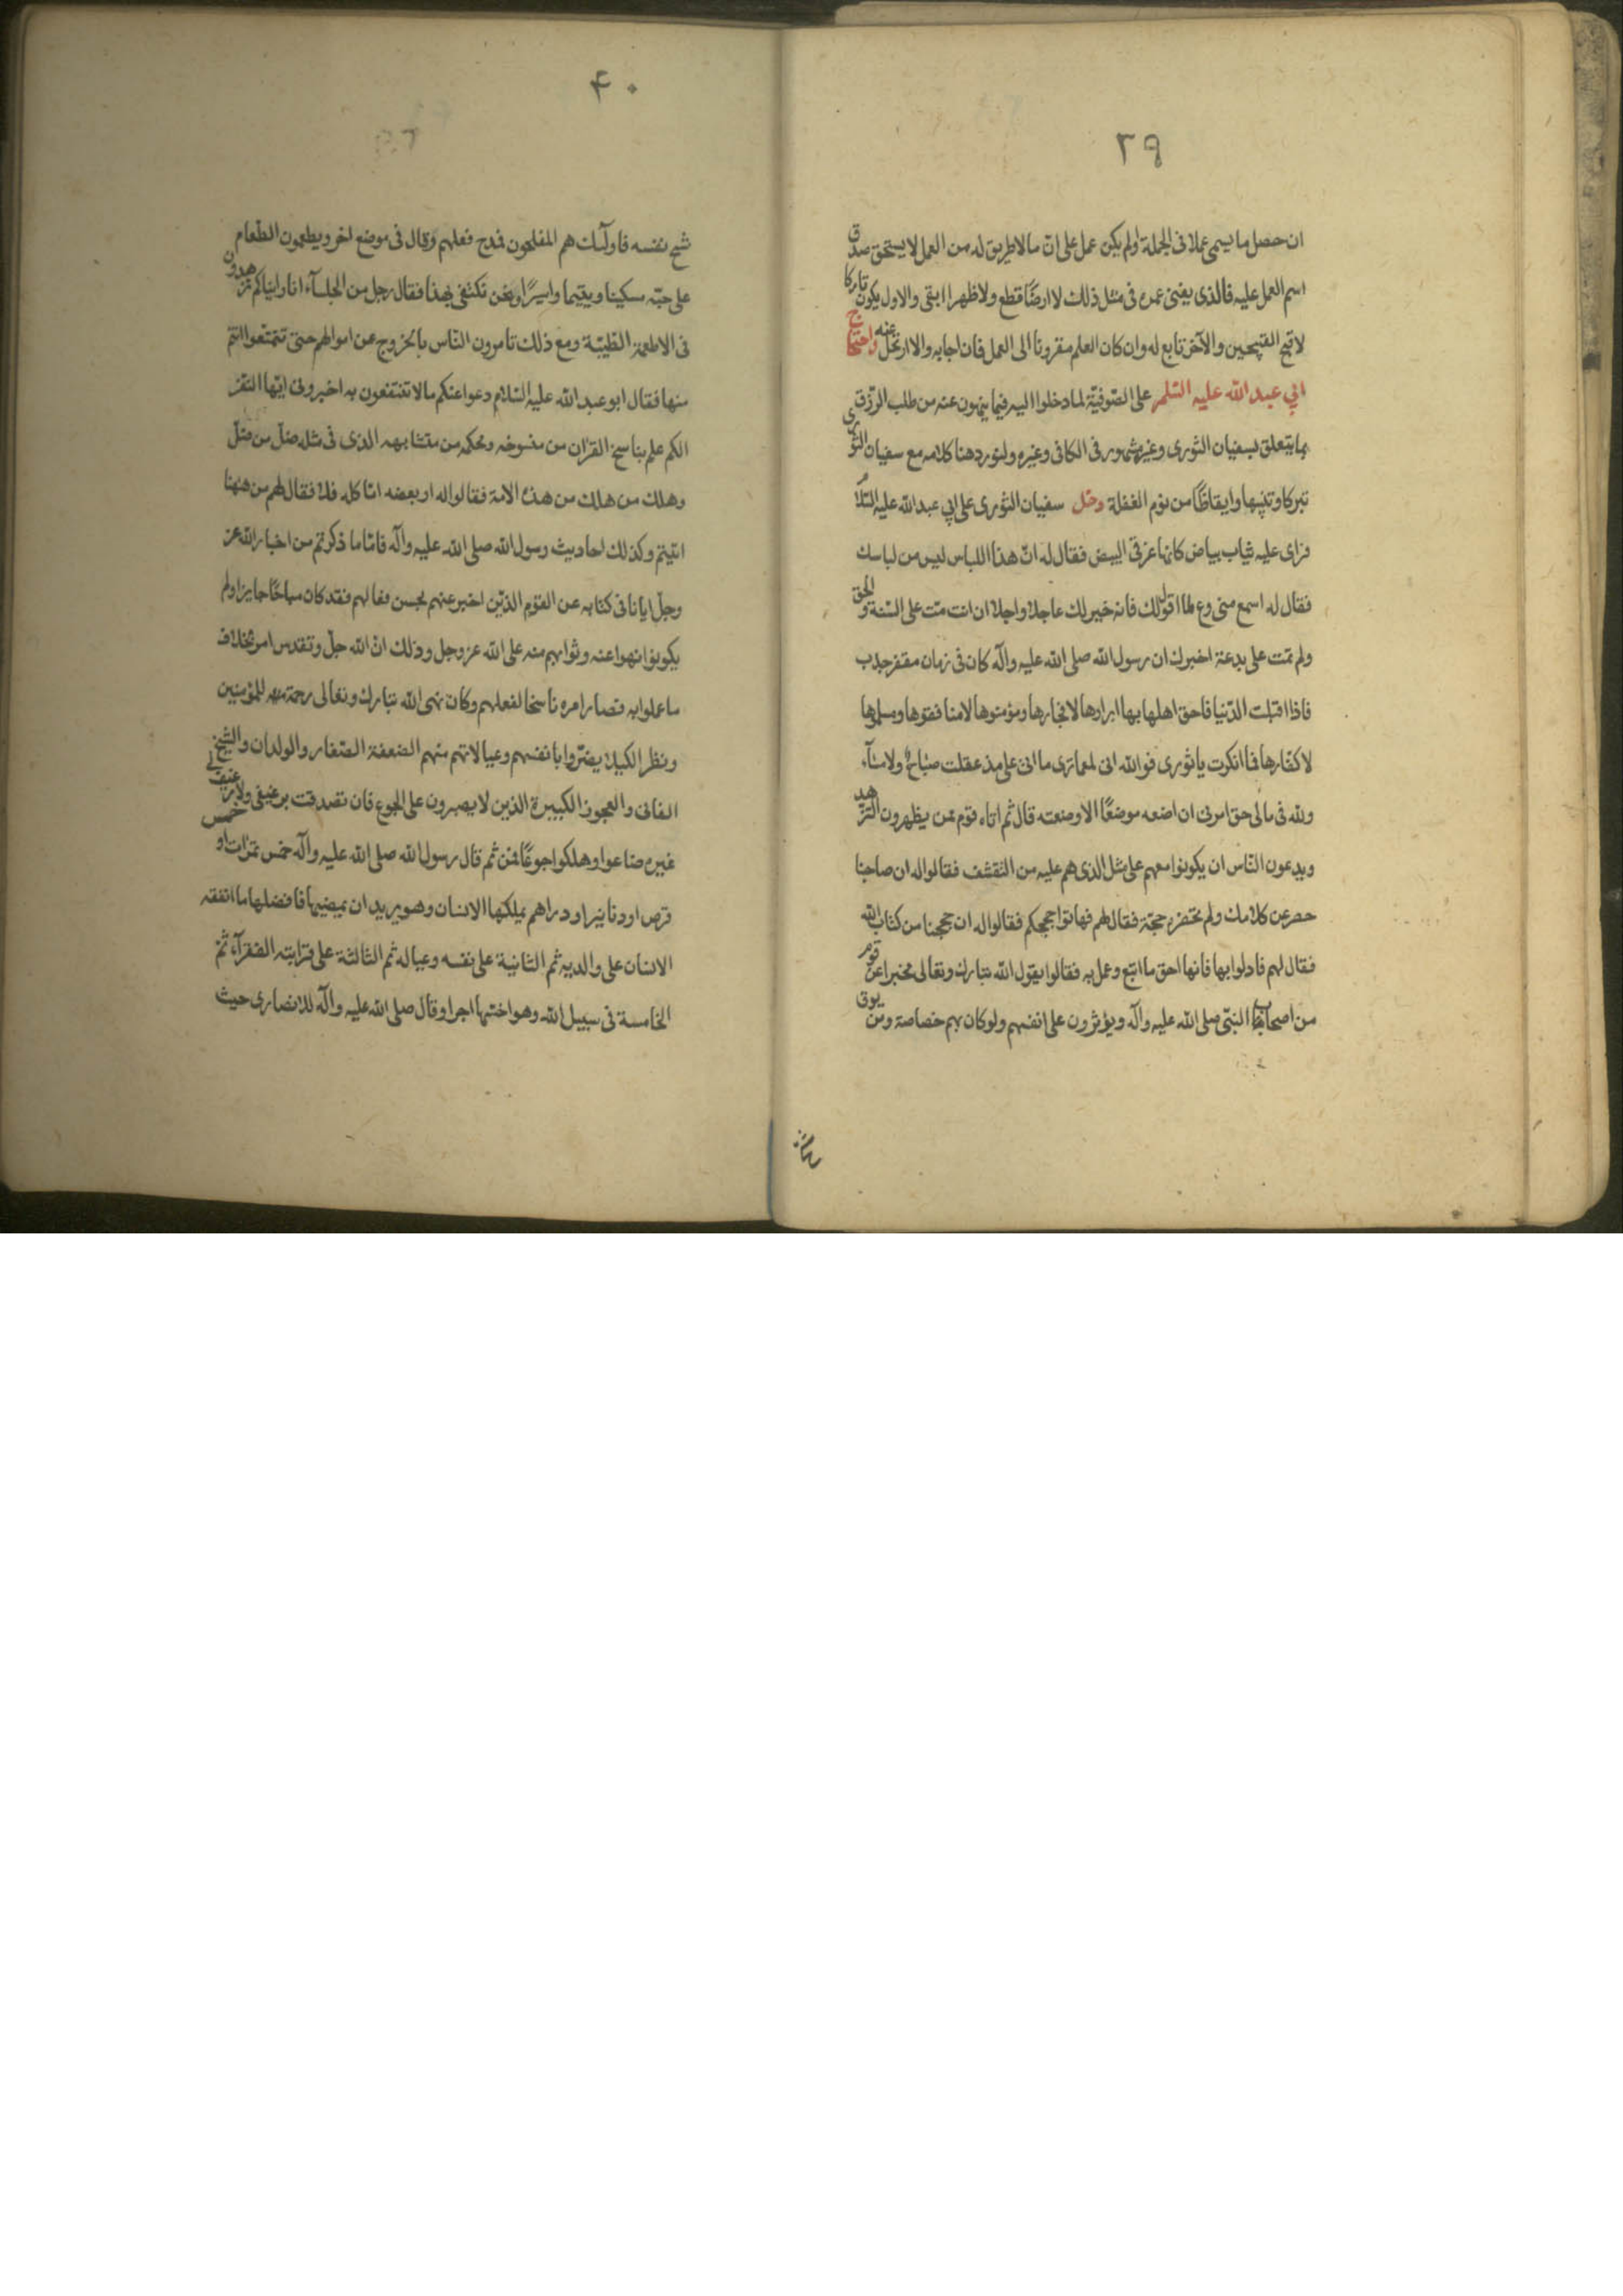 ٣٩
ان حصل ما يسمى عملا فى الجملة او لم يكن عمل على ان ما لا طريق له من العمل لا يستحق صدق
اسم العمل عليه فالذى يفنى عمره فى مثل ذلك لا ارضا قطع ولا ظهرا ابقى والاول يكون تاركا
لاقبح القبيحين والآخر تابع له وان كان العلم مقرونا الى العمل فان اجابه والا ارتحل عنه واحتجاج
ابي عبد الله عليه السلم على الصوفيّة لما دخلوا اليه فيما ينهون عنه من طلب الرزق
بما يتعلق بسفيان الثورى وغيره مشهور فى الكافى وغيره ولنورد هنا كلامه مع سفيان الثورى
تبركا وتنبيها وايقاظا من نوم الغفلة دخل سفيان الثورى على ابي عبد الله عليه السّلام
فراى عليه ثياب بياض كانها غرقى البيض فقال له انّ هذا اللباس ليس من لباسك
فقال له اسمع منى وع لما اقول لك فانه خير لك عاجلا واجلا ان انت متّ على السّنة والحق
ولم تمت على بدعة اخبرك ان رسول الله صلى الله عليه وآله كان فى زمان مقفر جدب
فاذا اقبلت الدّنيا فاحق اهلها بها ابرارها لا فجارها ومؤمنوها لا منافقوها ومسلموها
لا كفّارها فما انكرت يا ثورى فو الله انى لمع ما ترى ما اتى على مذ عقلت صباح ولا مسآء
ولله فى مالى حق امرنى ان اضعه موضعًا الا وضعته قال ثم اتاه قوم ممن يظهرون التزهد
ويدعون النّاس ان يكونوا معهم على مثل الذى هم عليه من التقشف فقالوا له ان صاحبنا
حصر عن كلامك ولم تحضره حجّة فقال لهم فهاتوا حججكم فقالوا له ان حججنا من كتاب الله
فقال لهم فادلوا بها فانها احق ما اتبع وعمل به فقالوا يقول الله تبارك وتعالى مخبرا عن قوم
من اصحاب النبّى صلى الله عليه وآله ويؤثرون على انفسهم ولو كان بهم خصاصة ومن يوق
٤٠
شح نفسه فاولئك هم المفلحون فمدح فعلهم وقال فى موضع اخر ويطعمون الطّعام
على حبّه مسكينا ويتيما واسيرًا ونحن نكتفى بهذا فقال رجل من الجلسآء انا رايناكم تزهدون
فى الاطعمة الطّيبّة ومع ذلك تامرون النّاس بالخروج عن اموالهم حتى تتمتعوا انتم
منها فقال ابو عبد الله عليه السّلام دعوا عنكم ما لا تنتفعون به اخبرونى ايّها النّفر
الكم علم بناسخ القران من منسوخه ومحكمه من متشابهه الذى فى مثله ضلّ من ضلّ
وهلك من هلك من هذه الامة فقالوا له او بعضه امّا كله فلا فقال لهم من ههنا
اتيتم وكذلك احاديث رسول الله صلى الله عليه وآله فامّا ما ذكرتم من اخبار الله عز
وجلّ ايانا فى كتابه عن القوم الذّين اخبر عنهم بحسن فعالهم فقد كان مباحًا جايزا ولم
يكونوا نهوا عنه وثوابهم منه على الله عز وجل وذلك انّ الله جلّ وتقدس امر بخلاف
ما عملوا به فصار امره ناسخا لفعلهم وكان نهى الله تبارك وتعالى رحمة منه للمؤمنين
ونظرا لكيلا يضرّوا بانفسهم وعيالاتهم منهم الضعفة الصّغار والولدان والشيخ
الفانى والعجوز الكبيرة الذين لا يصبرون على الجوع فان تصدقت برغيفى ولا رغيف لى
غيره ضاعوا وهلكوا جوعًا فمن ثم قال رسول الله صلى الله عليه وآله خمس تمرات او خمس
قرص او دنانير او دراهم يملكها الانسان وهو يريد ان يمضيها فافضلها ما انفقه
الانسان على والديه ثم الثانية على نفسه وعياله ثم الثالثة على قرابته الفقرآء ثم
الخامسة فى سبيل الله وهو اخسّها اجرا وقال صلى الله عليه وآله للانصارى حيث